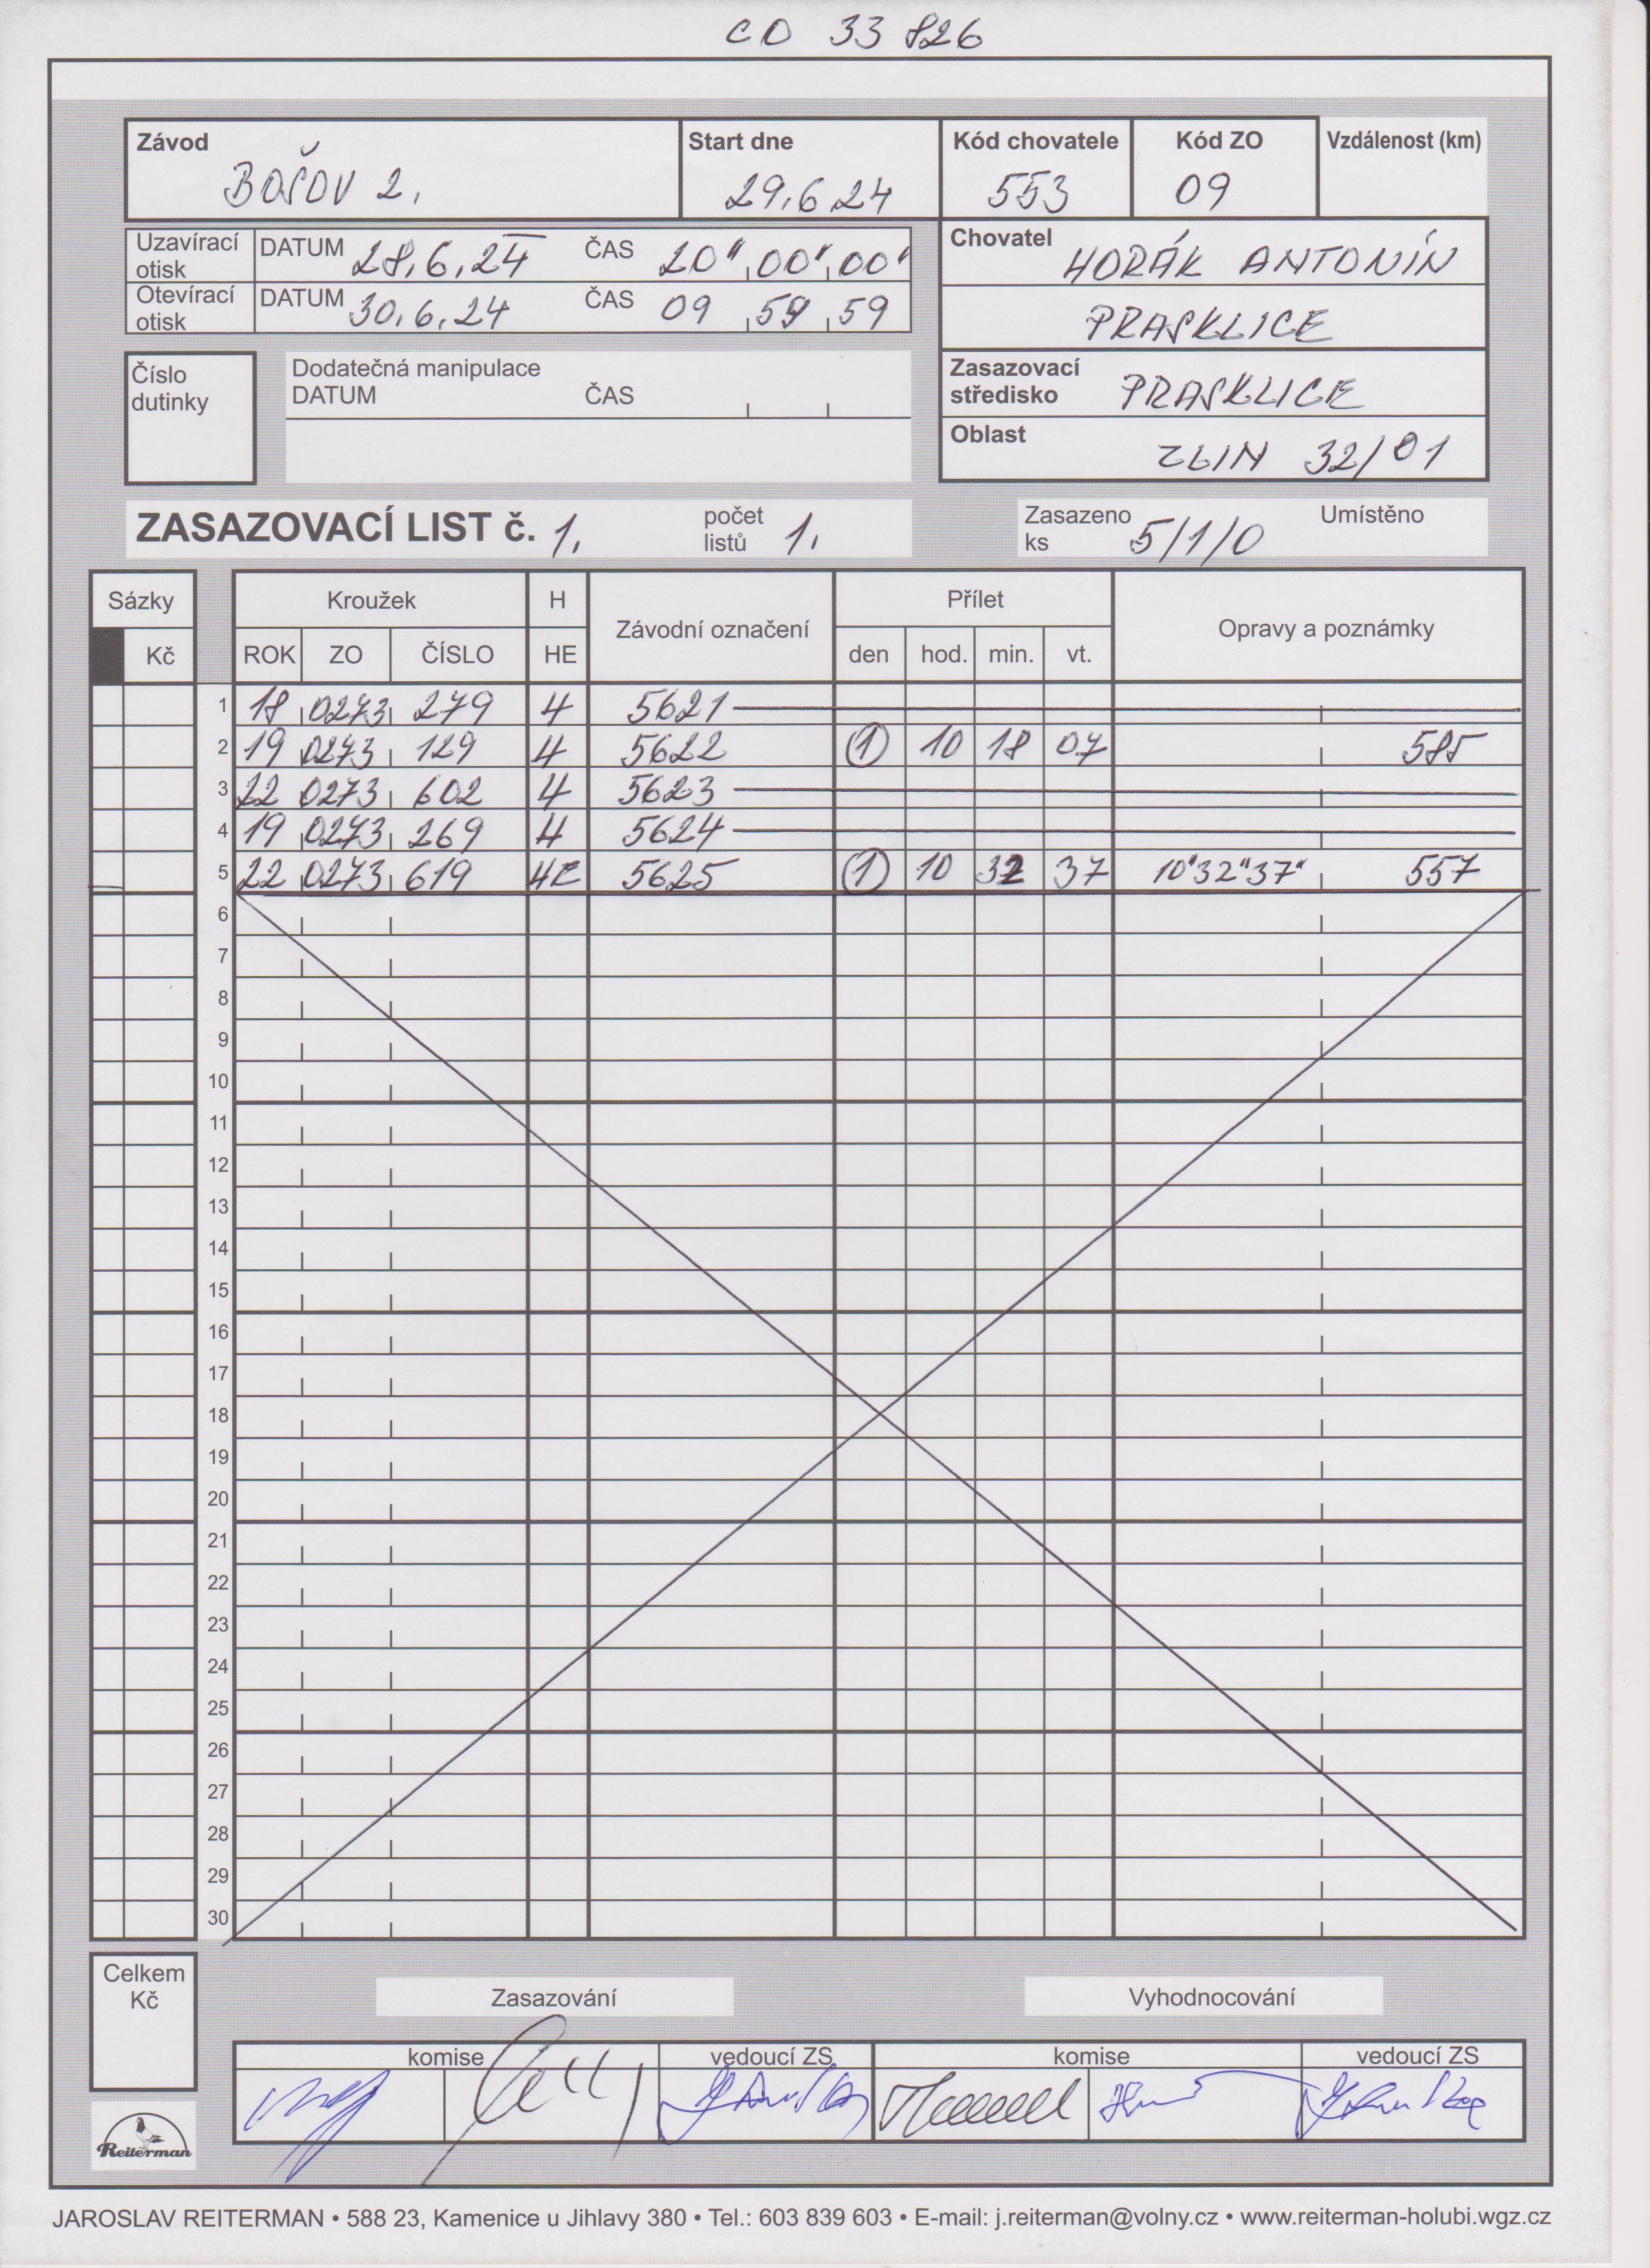 CD 33 826
Závod
BOŠOV 2.
Start dne
29.6.24
Kód chovatele
553
Kód ZO
09
Vzdálenost (km)
Uzavírací otisk DATUM 28.6.24 ČAS 20" 00" 00"
Otevírací otisk DATUM 30.6.24 ČAS 09 59 59
Chovatel HORÁK ANTONÍN
PRASKLICE
Číslo dutinky
Dodatečná manipulace
DATUM ČAS
Zasazovací středisko PRASKLICE
Oblast ZLIN 32/01
ZASAZOVACÍ LIST č. 1. počet listů 1. Zasazeno ks 5/1/0 Umístěno
Sázky Kroužek H Závodní označení Přílet Opravy a poznámky
Kč ROK ZO ČÍSLO HE den hod. min. vt.
1 18 0273 279 H 5621
2 19 0273 129 H 5622 1 10 18 07 585
3 22 0273 602 H 5623
4 19 0273 269 H 5624
5 22 0273 619 HE 5625 1 10 32 37 10"32"37" 557
6
7
8
9
10
11
12
13
14
15
16
17
18
19
20
21
22
23
24
25
26
27
28
29
30
Celkem Kč
Zasazování Vyhodnocování
komise vedoucí ZS komise vedoucí ZS
Reiterman
JAROSLAV REITERMAN • 588 23, Kamenice u Jihlavy 380 • Tel.: 603 839 603 • E-mail: j.reiterman@volny.cz • www.reiterman-holubi.wgz.cz